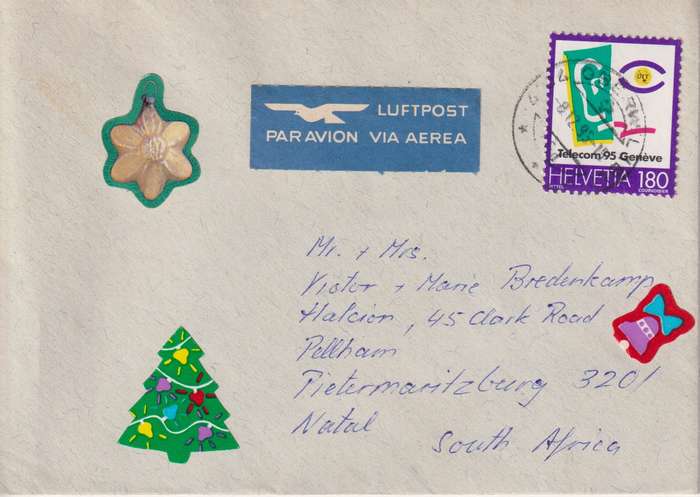 LUFTPOST
PAR AVION VIA AEREA
Telecom 95 Genève
HELVETIA 180
Mr. + Mrs.
Victor + Marie Bredenkamp
Halcion, 45 Clark Road
Pellham
Pietermaritzburg 3201
Natal
South Africa